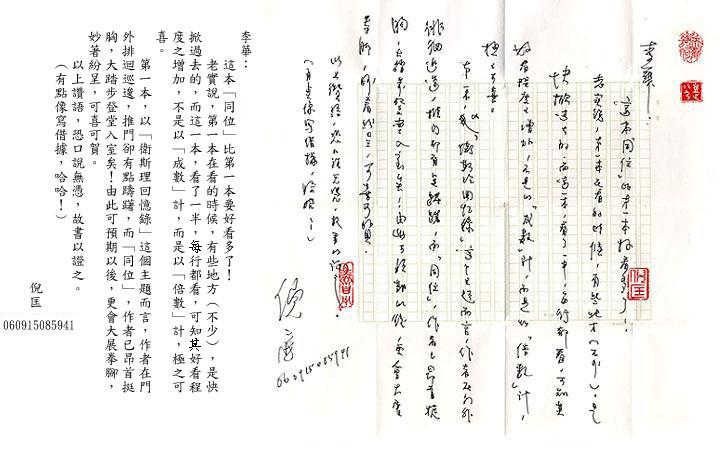 李華：
這本「同位」比第一本好看多了！
老實說，第一本在看的時候，有些地方（不少），是
快掀過去的，而這一本，看了一半，每行都看，可知其
好看程度之增加，不是以「成數」計，而是以「倍數」計，
極之可喜。
第一本，以「衛斯理回憶錄」這個主題而言，作者在門外
徘徊巡邊，推門卻有點躊躇，而「同位」，作者已昂首挺
胸，大踏步登堂入室矣！由此可預期以後，更會大展
拳腳，妙著紛呈，可喜可賀。
以上讚語，恐口說無憑，故書以證之。
（有點像寫借據，哈哈！）
倪匡
060915085941
倪匡
李華：
這本「同位」比第一本要好看多了！
老實說，第一本在看的時候，有些地方（不少），是快
掀過去的，而這一本，看了一半，每行都看，可知其好看程
度之增加，不是以「成數」計，而是以「倍數」計，極之可
喜。
第一本，以「衛斯理回憶錄」這個主題而言，作者在門
外排迴巡邊，推門卻有點躊躇，而「同位」，作者已昂首挺
胸，大踏步登堂入室矣！由此可預期以後，更會大展拳腳，
妙著紛呈，可喜可賀。
以上讚語，恐口說無憑，故書以證之。
（有點像寫借據，哈哈！）
倪匡
060915085941